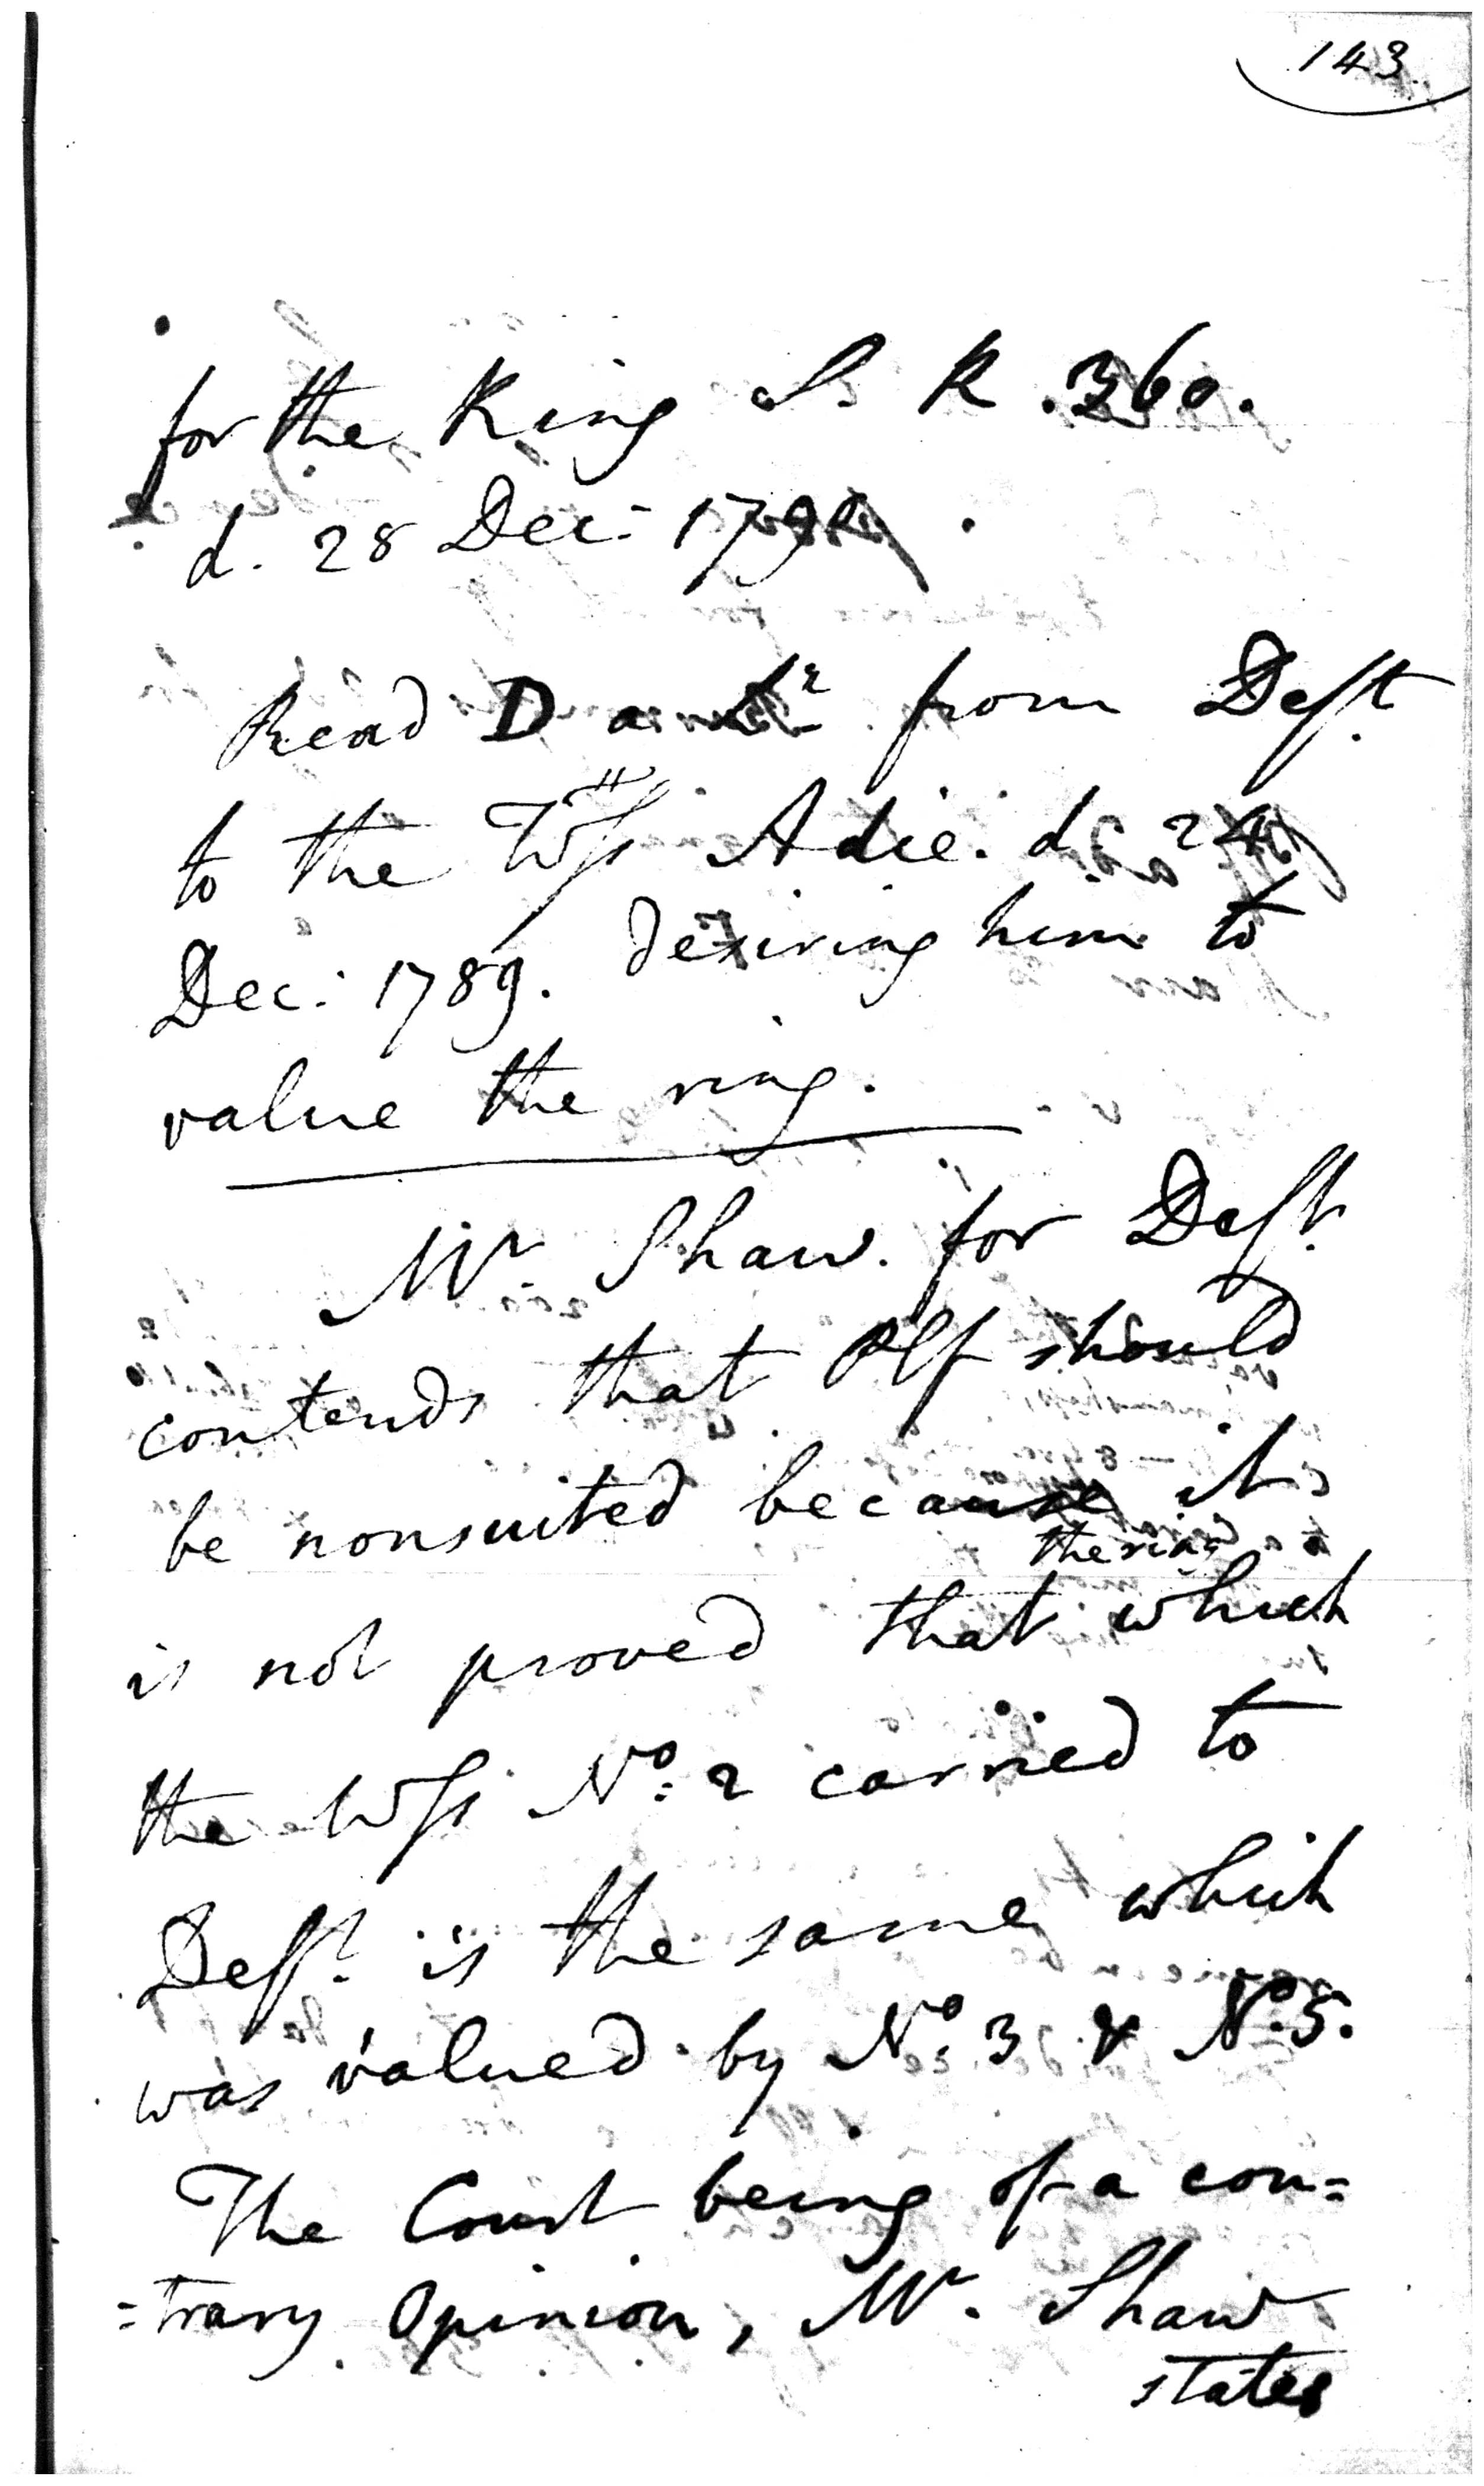 143
for the Ring S. R. 360.
d. 28 Dec: 1790.
Read D a Lr from Deft
to the Wss Adie. d. 24
Dec: 1789. desiring him to
value the ring.
Mr. Shaw. for Deft.
contends that Plf should
be nonsuited because it
the ring
is not proved that which
the Wss No. 2 carried to
Deft. is the same which
was valued by No. 3 & No. 5.
The Court being of a con=
=trary Opinion, Mr. Shaw
states